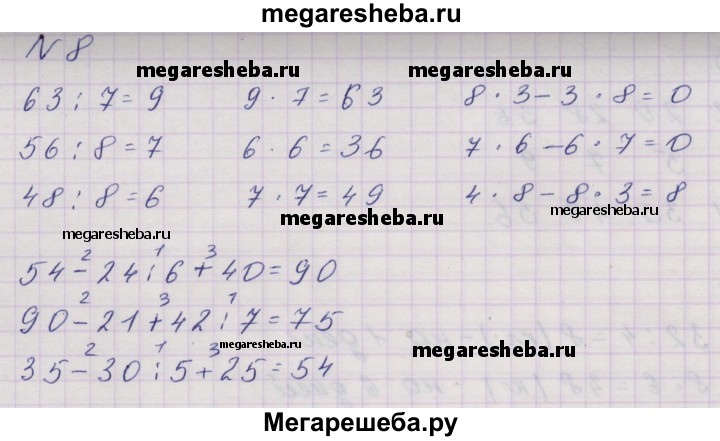 megaresheba.ru
N 8
megaresheba.ru megaresheba.ru
63 : 7 = 9 9 · 7 = 63 8 · 3 - 3 · 8 = 0
56 : 8 = 7 6 · 6 = 36 7 · 6 - 6 · 7 = 0
48 : 8 = 6 7 · 7 = 49 4 · 8 - 8 · 3 = 8
megaresheba.ru megaresheba.ru megaresheba.ru
2 1 3
54 - 24 : 6 + 40 = 90
2 3 1
90 - 21 + 42 : 7 = 75
megaresheba.ru megaresheba.ru
2 1 3
35 - 30 : 5 + 25 = 54
Мегарешеба.ру